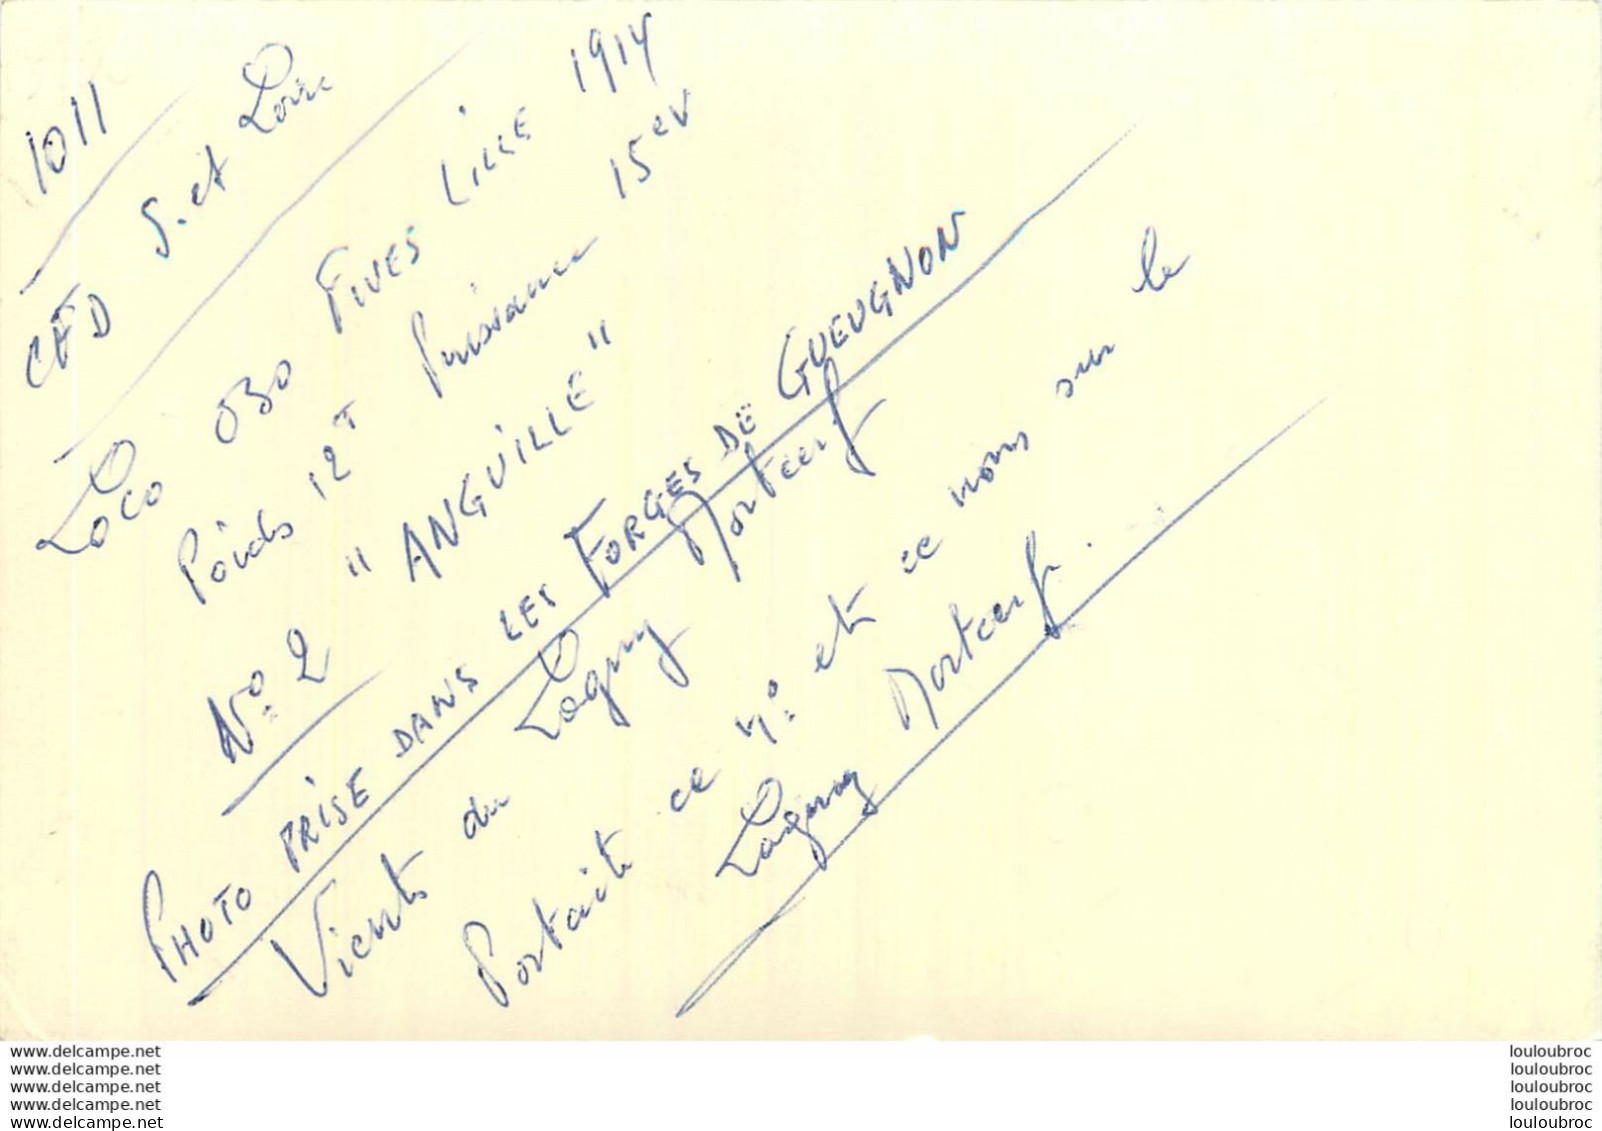 1011
CFD S. et Loire
Loco 030 FIVES LILLE 1914
Poids 12T Puissance 15cv
No 2 "ANGUILLE"
PHOTO PRISE DANS LES FORGES DE GUEUGNON
Vients du Lagny Mortcerf
Portait ce No et ce nom sur le
Lagny Mortcerf.
www.delcampe.net
www.delcampe.net
www.delcampe.net
www.delcampe.net
www.delcampe.net
louloubroc
louloubroc
louloubroc
louloubroc
louloubroc